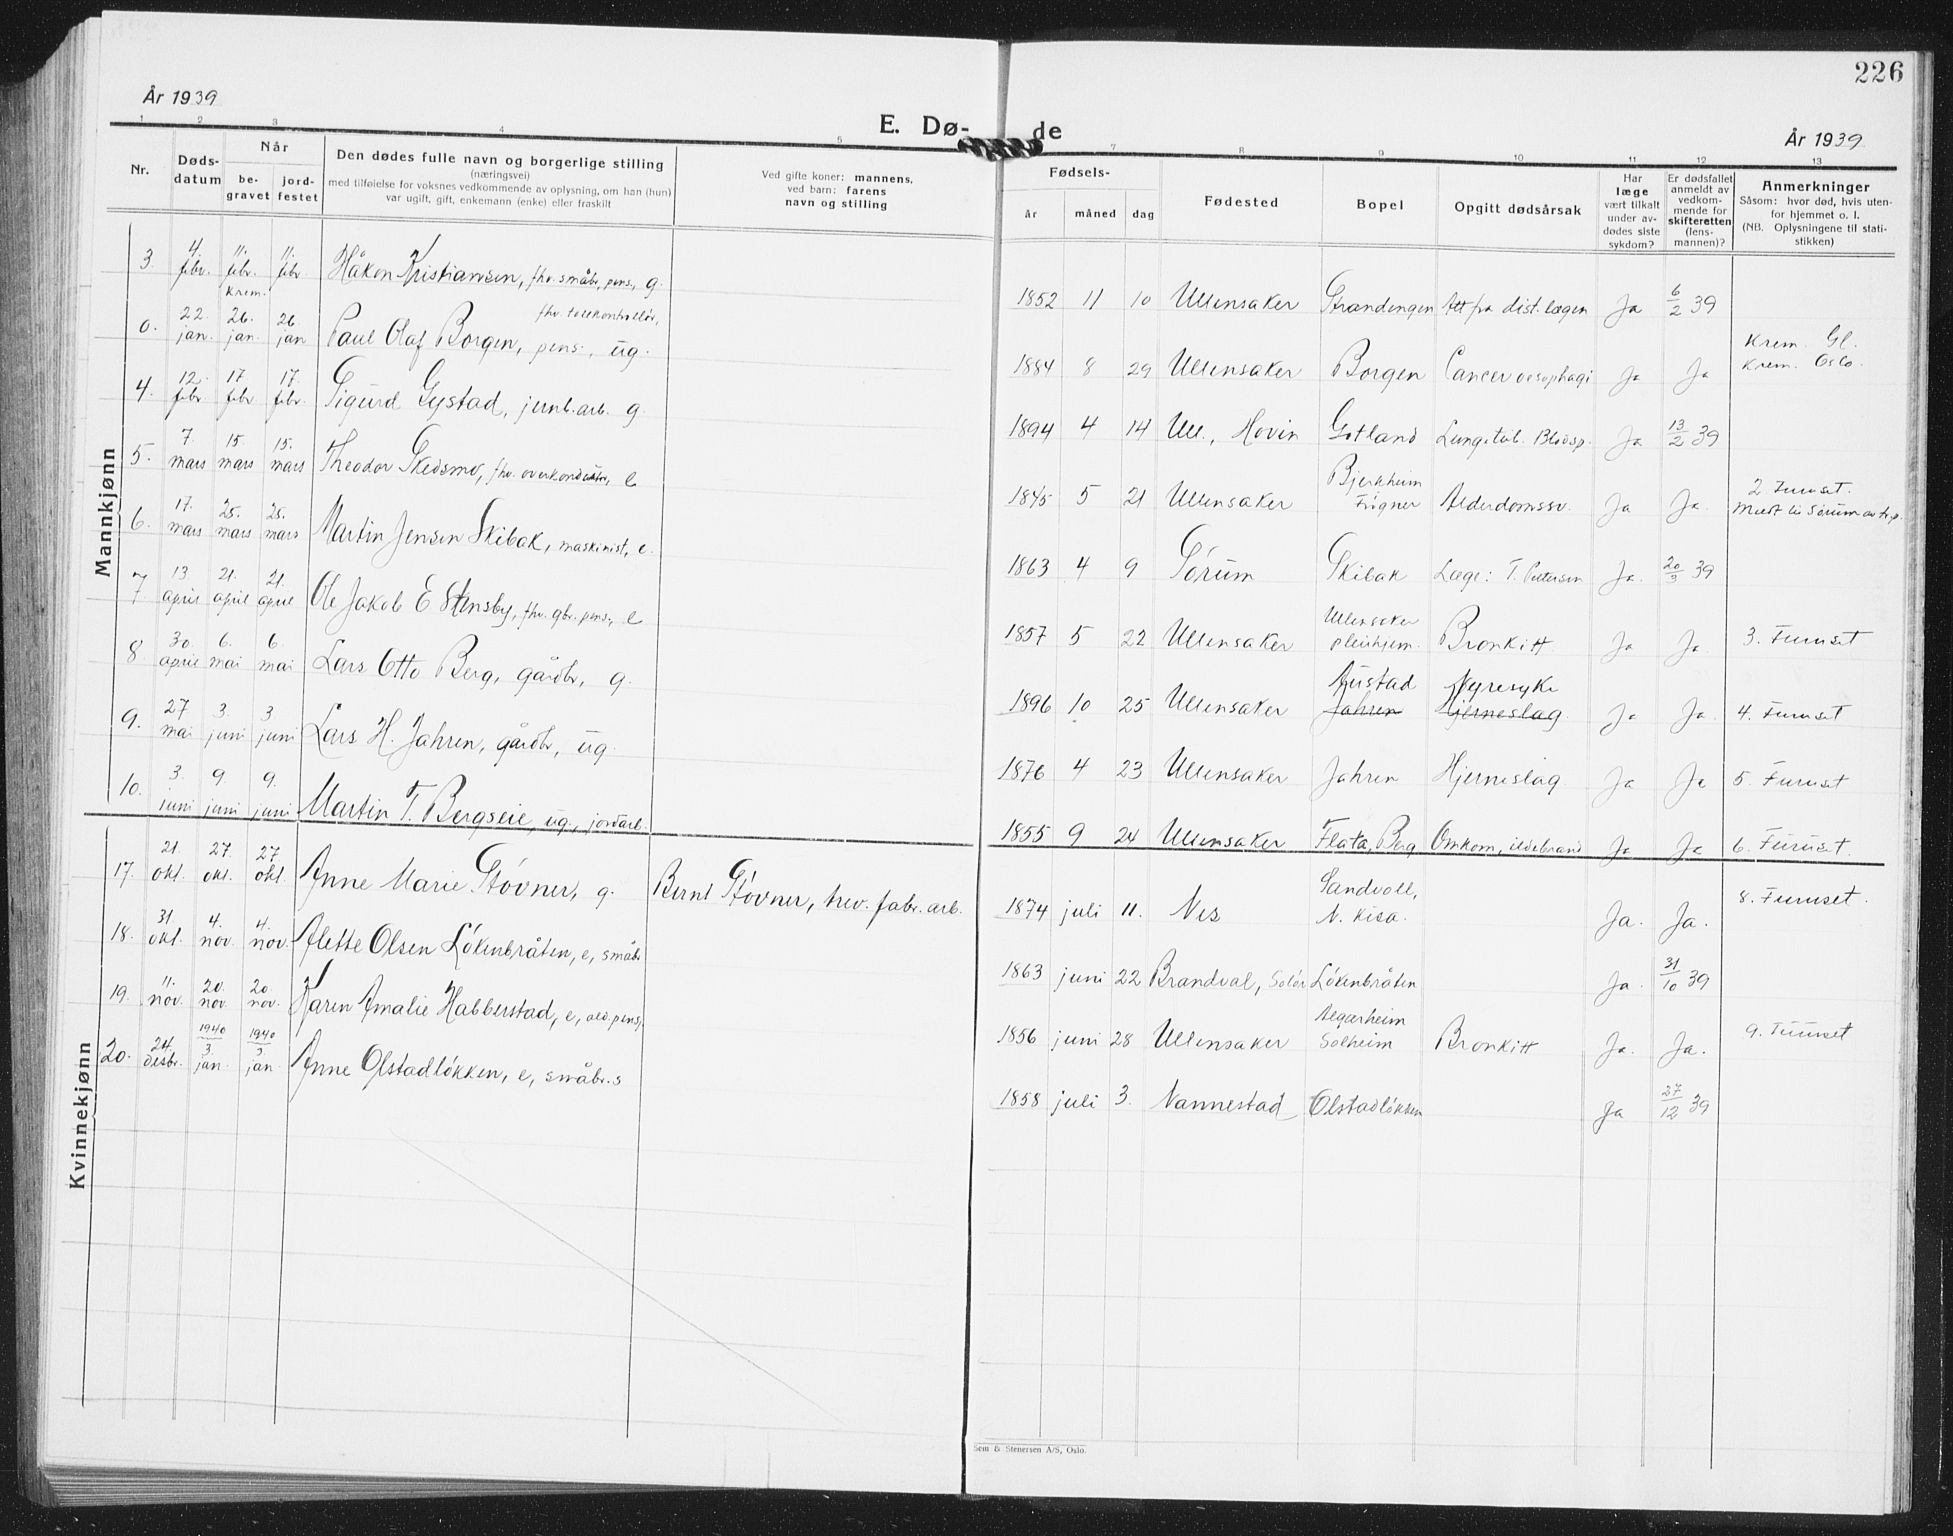 226
År 1939
E. Dø-
de
År 1939
1 2 3 4 5 7 8 9 10 11 12 13
Nr.
Døds-
datum
Når
be-
gravet
jord-
festet
Den dødes fulle navn og borgerlige stilling
(næringsvei)
med tilføielse for voksnes vedkommende av oplysning, om han (hun)
var ugift, gift, enkemann (enke) eller fraskilt
Ved gifte koner: mannens,
ved barn: farens
navn og stilling
Fødsels-
år måned dag
Fødested
Bopel
Opgitt dødsårsak
Har
læge
vært tilkalt
under av-
dødes siste
sykdom?
Er dødsfallet
anmeldt av
vedkom-
mende for
skifteretten
(lens-
mannen)?
Anmerkninger
Såsom: hvor død, hvis uten-
for hjemmet o. l.
(NB. Oplysningene til stati-
stikken)
Mannkjønn
3 4. febr. 11. febr. krem. 11. febr Håkon Kristiansen, fhv. småbr, pens., g. 1852 11 10 Ullensaker Strandengen Att fra dist. lægen Ja 6/2 39
0. 22. jan. 26. jan. 26. jan Paul Olaf Borgen, fhv. tollkontrollør, pens., ug. 1884 8 29 Ullensaker Borgen Cancer oesophagi Ja Ja Krem. Gl. Krem. Oslo.
4. 12. febr 17 febr 17. febr. Sigurd Gystad, jernb.arb. g. 1894 4 14 Ull., Hovin Gotland Lungetub. Blodsp. Ja 13/2 39
5. 7. mars 15 mars 15. mars Theodor Skedsmo, fhv. overkonduktør, e 1845 5 21 Ullensaker Bjerkheim Frogner Alderdomssv. Ja Ja. 2 Furuset. Meldt til Sørum av
6. 17. mars 25. mars 25. mars Martin Jensen Skibak, maskinist, e. 1863 4 9 Sørum Skibak Læge: T. Pettersen Ja. 20/3 39
7 13. april 21. april 21. april Ole Jakob E Stensby, fhv. gbr. pens., e 1857 5 22 Ullensaker Ullensaker pleiehjem. Bronkitt Ja Ja. 3. Furuset
8. 30. april 6. mai 6. mai Lars Otto Berg, gårdbr, g. 1896 10 25 Ullensaker Austad Jahren Nyresyke Hjerneslag Ja Ja. 4. Furuset
9. 27 mai 3. juni 3 juni Lars H. Jahren, gårdbr, ug. 1876 4 23 Ullensaker Jahren Hjerneslag Ja Ja 5. Furuset
10. 3. juni 9. juni 9. juni Martin T. Bergseie, ug., jordarb. 1855 9 24 Ullensaker Flata, Berg Omkom, ildebrand Ja Ja 6. Furuset.
Kvinnekjønn
17. 21. okt. 27. okt. 27 okt. Anne Marie Støvner, g. Bernt Støvner, trev. fabr. arb. 1874 juli 11. Nes Sandvoll, N. Kisa. Ja. Ja. 8. Furuset.
18. 31 okt. 4. nov. 4. nov. Alette Olsen Løkenbråten, e, småbr 1863 juni 22 Brandval, Solør Løkenbråten Ja. 31/10 39
19. 11. nov. 20. nov. 20. nov. Karen Amalie Habberstad, e, ald.pensj. 1856 juni 28 Ullensaker Algarheim Solheim Bronkitt Ja. Ja. 9. Furuset
20. 24. desbr. 1940 3 jan. 1940 3. jan. Anne Olstadløkken, e, småbr.s 1858 juli 3. Nannestad Olstadløkken Ja 27/12 39
Sem & Stenersen A/S, Oslo.